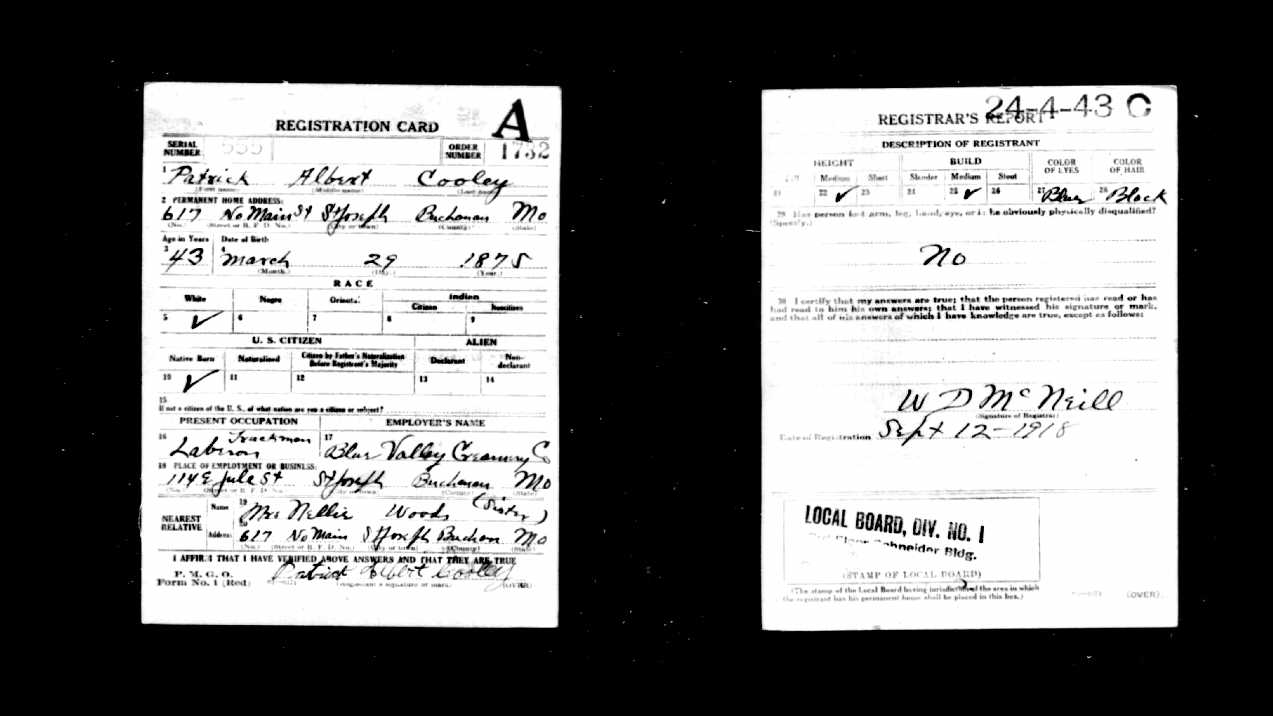 A
REGISTRATION CARD
SERIAL NUMBER 555 ORDER NUMBER 1732
1 Patrick Albert Cooley
(First name) (Middle name) (Last name)
2 PERMANENT HOME ADDRESS:
617 No Main St St Joseph Buchanan Mo
(No.) (Street or R. F. D. No.) (City or town) (County) (State)
Age in Years Date of Birth
3 43 4 March 29 1875
(Month.) (Day.) (Year.)
RACE
White Negro Oriental Indian
Citizen Noncitizen
5 ✓ 6 7 8 9
U. S. CITIZEN ALIEN
Native Born Naturalized Citizen by Father's Naturalization Before Registrant's Majority Declarant Non-declarant
10 ✓ 11 12 13 14
15
If not a citizen of the U. S., of what nation are you a citizen or subject?
PRESENT OCCUPATION EMPLOYER'S NAME
16 Trackman 17
Laberor Blue Valley Creamery Co
18 PLACE OF EMPLOYMENT OR BUSINESS:
114 E Jule St St Joseph Buchanan Mo
(No.) (Street or R. F. D. No.) (City or town) (County) (State)
NEAREST RELATIVE Name 19 Mrs Nellie Woods (Sister)
Address 617 No Main St Joseph Buchan Mo
(No.) (Street or R. F. D. No.) (City or town) (County) (State)
I AFFIRM THAT I HAVE VERIFIED ABOVE ANSWERS AND THAT THEY ARE TRUE
P. M. G. O.
Form No. 1 (Red) Patrick Albert Cooley
(Registrant's signature or mark) (OVER)
24-4-43 C
REGISTRAR'S REPORT
DESCRIPTION OF REGISTRANT
HEIGHT BUILD COLOR OF EYES COLOR OF HAIR
Medium Short Slender Medium Stout
21 22 ✓ 23 24 25 ✓ 26 27 Blue 28 Black
29 Has person lost arm, leg, hand, eye, or is he obviously physically disqualified?
(Specify.)
No
30 I certify that my answers are true; that the person registered has read or has
had read to him his own answers; that I have witnessed his signature or mark,
and that all of his answers of which I have knowledge are true, except as follows:
W D McNeill
(Signature of Registrar)
Date of Registration Sept 12-1918
LOCAL BOARD, DIV. NO. 1
Floor Schneider Bldg.
(STAMP OF LOCAL BOARD)
(The stamp of the Local Board having jurisdiction of the area in which
the registrant has his permanent home shall be placed in this box.)
(OVER)